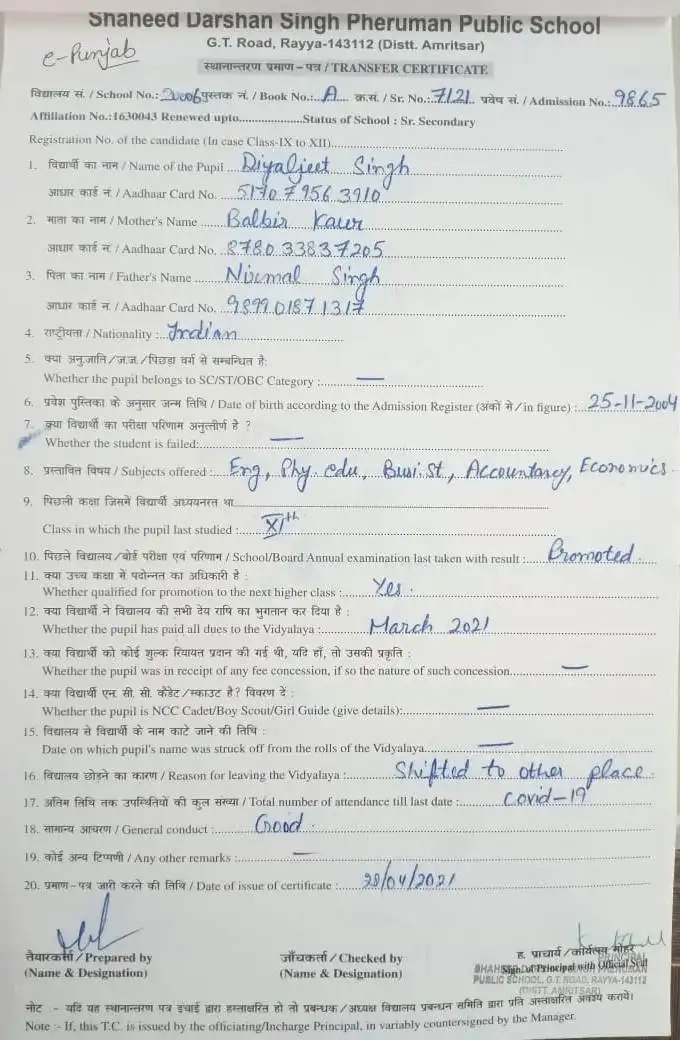 Shaheed Darshan Singh Pheruman Public School
e-Punjab
G.T. Road, Rayya-143112 (Distt. Amritsar)
स्थानान्तरण प्रमाण – पत्र / TRANSFER CERTIFICATE
विद्यालय सं. / School No.: 2006 पुस्तक नं. / Book No.: A क्र.सं. / Sr. No.: 7121 प्रवेष सं. / Admission No.: 9865
Affiliation No.:1630043 Renewed upto....................Status of School : Sr. Secondary
Registration No. of the candidate (In case Class-IX to XII)
1. विद्यार्थी का नाम / Name of the Pupil Diyaljeet Singh
आधार कार्ड नं. / Aadhaar Card No. 5170 7956 3910
2. माता का नाम / Mother's Name Balbir Kaur
आधार कार्ड नं. / Aadhaar Card No. 8780 33837205
3. पिता का नाम / Father's Name Nirmal Singh
आधार कार्ड नं. / Aadhaar Card No. 989901871317
4. राष्ट्रीयता / Nationality : Indian
5. क्या अनुजाति / ज.ज. / पिछड़ा वर्ग से सम्बन्धित है:
Whether the pupil belongs to SC/ST/OBC Category : —
6. प्रवेश पुस्तिका के अनुसार जन्म तिथि / Date of birth according to the Admission Register (अंकों मे / in figure) : 25-11-2004
7. क्या विद्यार्थी का परीक्षा परिणाम अनुत्तीर्ण है ?
Whether the student is failed: —
8. प्रस्तावित विषय / Subjects offered : Eng, Phy. edu, Busi. St, Accountancy, Economics.
9. पिछली कक्षा जिसमें विद्यार्थी अध्ययनरत था
Class in which the pupil last studied : XIth
10. पिछले विद्यालय / बोर्ड परीक्षा एवं परिणाम / School/Board Annual examination last taken with result : Promoted.
11. क्या उच्च कक्षा में पदोन्नत का अधिकारी है :
Whether qualified for promotion to the next higher class : Yes.
12. क्या विद्यार्थी ने विद्यालय की सभी देय राषि का भुगतान कर दिया है :
Whether the pupil has paid all dues to the Vidyalaya : March 2021
13. क्या विद्यार्थी को कोई शुल्क रियायत प्रदान की गई थी, यदि हाँ, तो उसकी प्रकृति :
Whether the pupil was in receipt of any fee concession, if so the nature of such concession —
14. क्या विद्यार्थी एन. सी. सी. कैडेट / स्काउट है? विवरण दें :
Whether the pupil is NCC Cadet/Boy Scout/Girl Guide (give details): —
15. विद्यालय से विद्यार्थी के नाम काटे जाने की तिथि :
Date on which pupil's name was struck off from the rolls of the Vidyalaya —
16. विद्यालय छोड़ने का कारण / Reason for leaving the Vidyalaya : Shifted to other place.
17. अंतिम तिथि तक उपस्थितियों की कुल संख्या / Total number of attendance till last date : Covid-19
18. सामान्य आचरण / General conduct : Good.
19. कोई अन्य टिप्पणी / Any other remarks : —
20. प्रमाण – पत्र जारी करने की तिथि / Date of issue of certificate : 28/04/2021
तैयारकर्त्ता / Prepared by जाँचकर्ता / Checked by ह. प्राचार्य / कार्यालय मोहर
PRINCIPAL
(Name & Designation) (Name & Designation) Sign. of Principal with Official Seal
PUBLIC SCHOOL, G.T. ROAD, RAYYA-143112
(DISTT. AMRITSAR)
नोट - यदि यह स्थानान्तरण पत्र इंचार्ज द्वारा हस्ताक्षरित हो तो प्रबन्धक / अध्यक्ष विद्यालय प्रबन्धन समिति द्वारा प्रति अस्ताक्षरित अवश्य करायें।
Note :- If, this T.C. is issued by the officiating/Incharge Principal, in variably countersigned by the Manager.